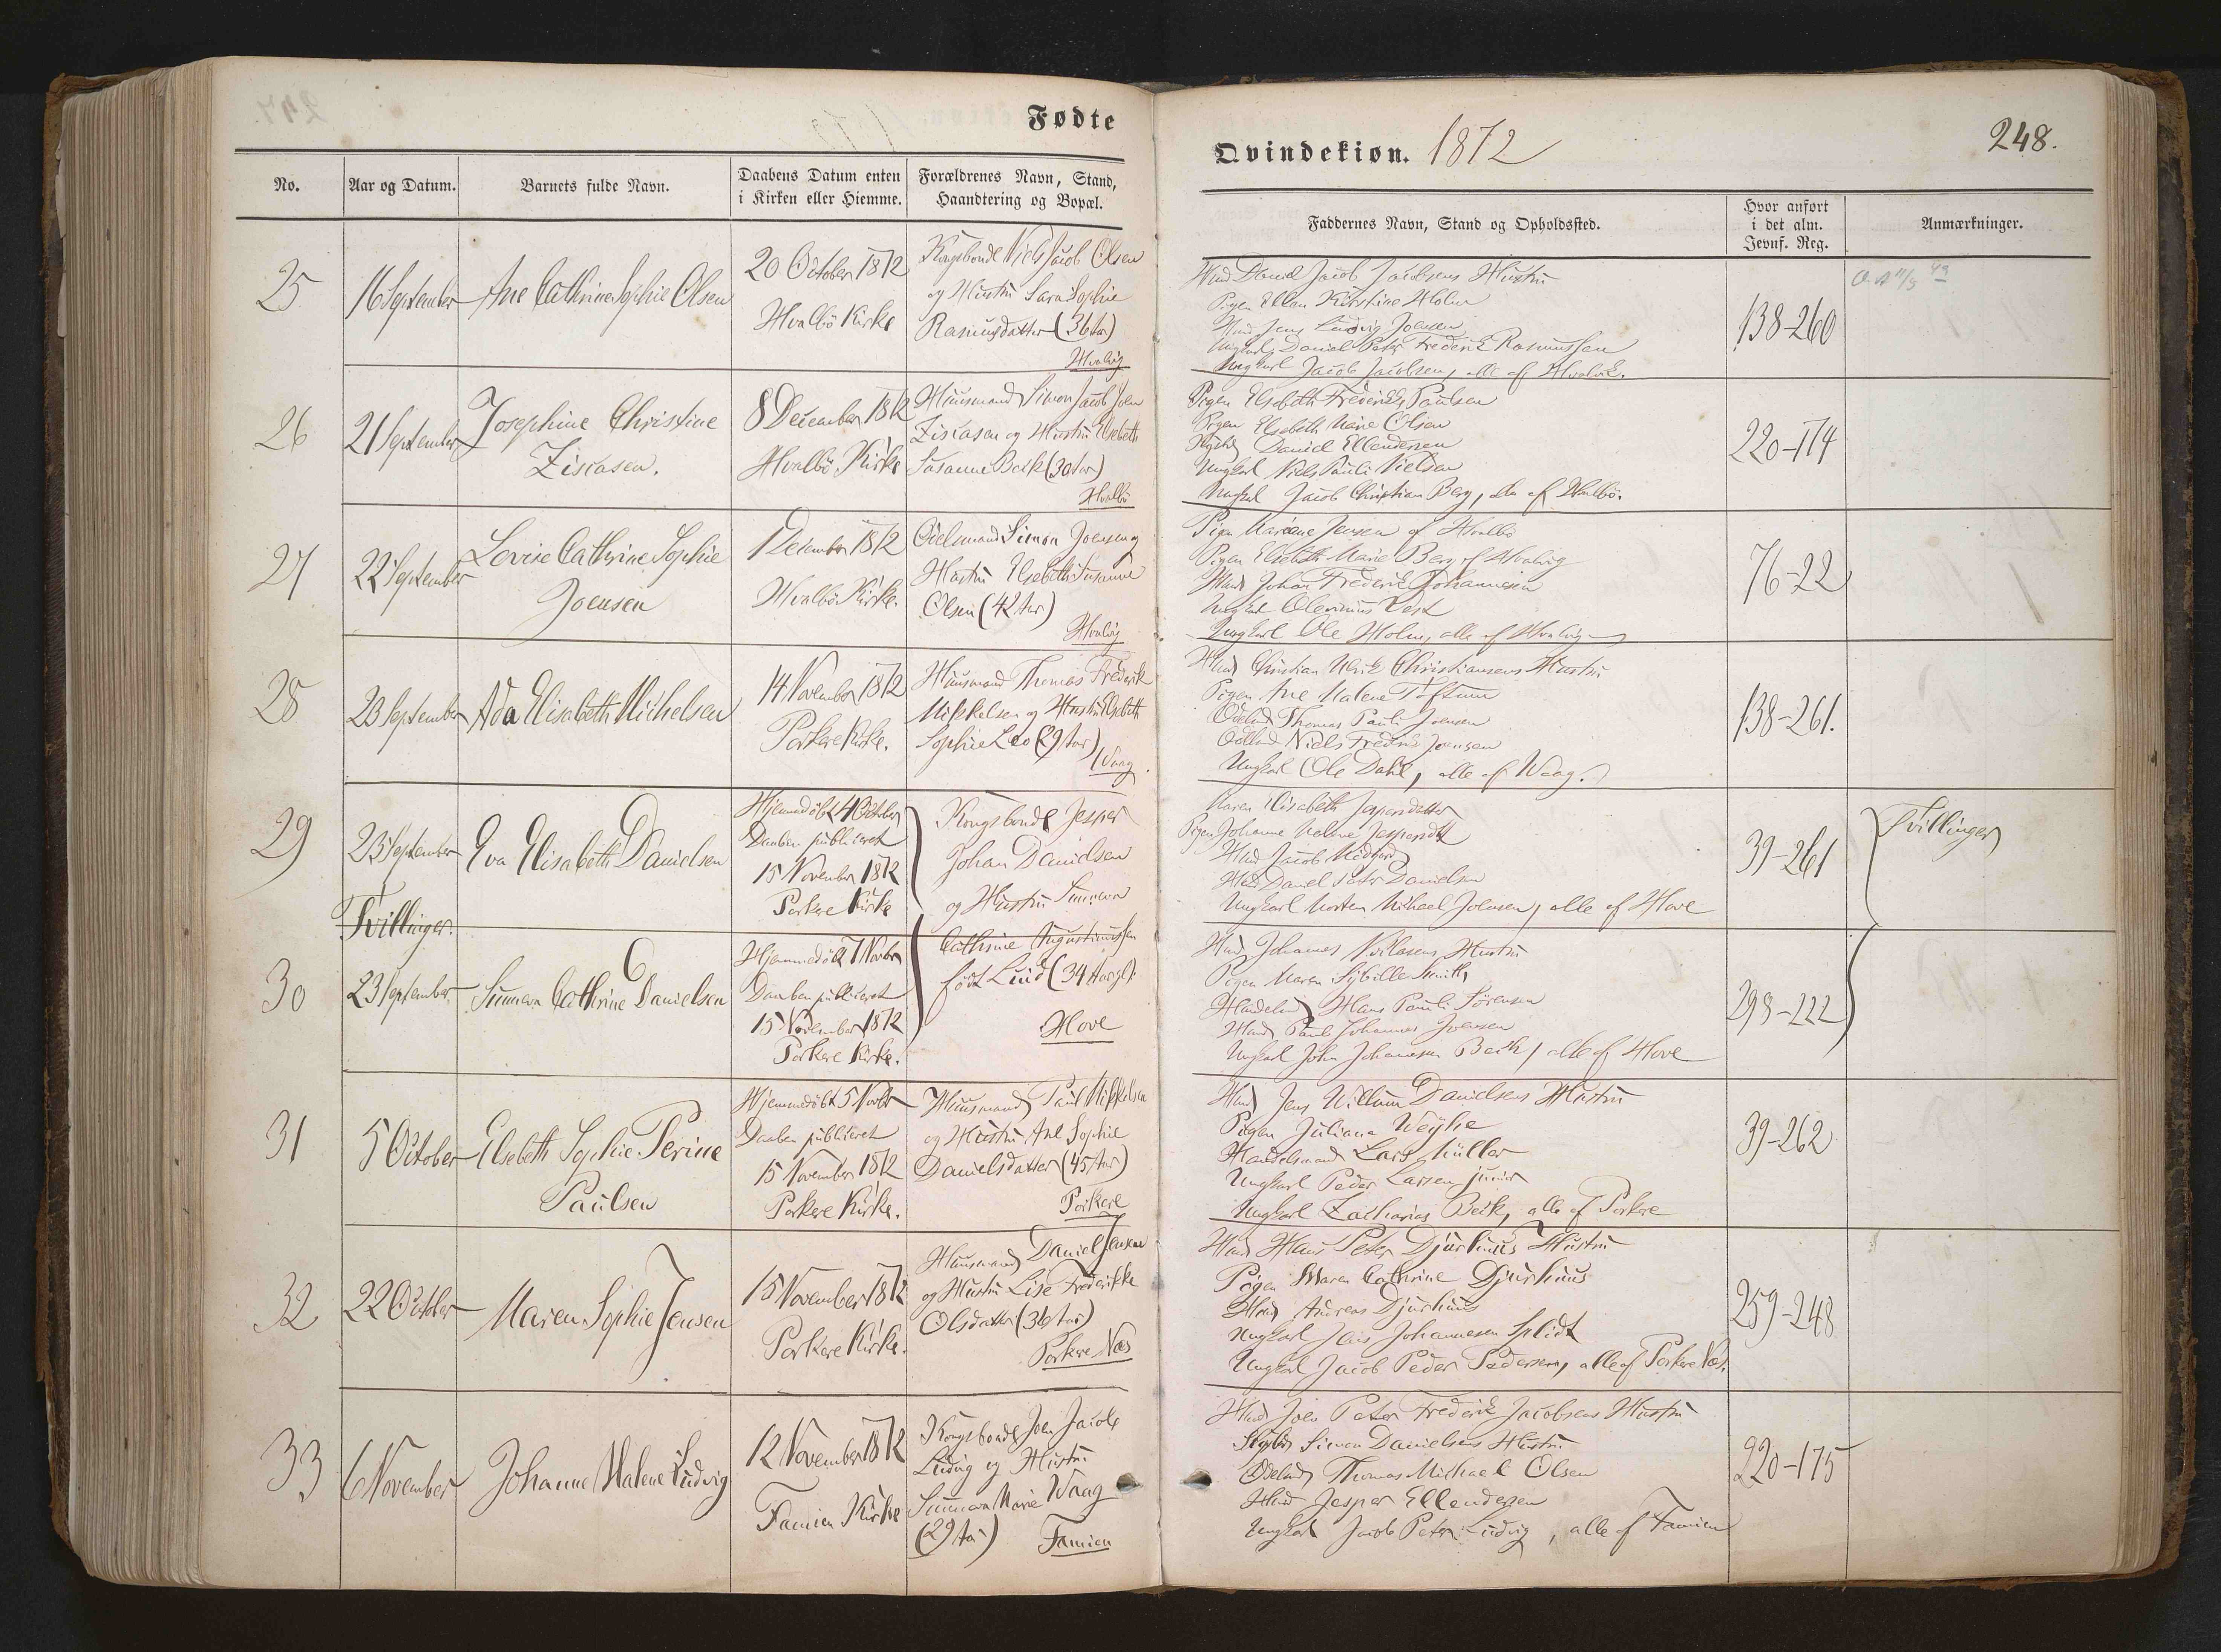 Fødte
No.
Aar og Datum.
Barnets fulde Navn.
Daabens Datum enten
i Kirken eller Hiemme.
Forældrenes Navn, Stand,
Haandtering og Bopæl.
25
16 September
Ane Cathrine Sophie Olsen
20 October 1872
Hvalbö Kirke
Kongsbonde Niels Jacob Olsen
og Hustru Sara Sophie
Rasmusdatter (36 Aar)
Hvalvig
26
21 September
Josephine Christine
Ziscasen.
8 December 1872
Hvalbö Kirke
Huusmand Simon Jacob Joen
Ziscasen og Hustru Elsebeth
Susanne Beck (30 Aar)
Hvalbö
27
22 September
Lovise Cathrine Sophie
Joensen
1 December 1872
Hvalbö Kirke.
Odelsmand Simon Joensen og
Hustru Elsebeth Susanne
Olsen (42 Aar)
Hvalvig
28
23 September
Ada Elisabeth Michelsen
14 November 1872
Porkere Kirke.
Huusmand Thomas Frederik
Mikkelsen og Hustru Elsebeth
Sophie Leo (29 Aar)
Waag.
29
23 September
Tvillinger.
Eva Elisabeth Danielsen
Hjemmedöbt 4 October
Daaben publiceret
15 November 1872
Porkere Kirke
Kongsbonde Jesper
Johan Danielsen
og Hustru Sunneva
30
23 September
Sunneva Cathrine Danielsen
Hjemmedöbt 7 Novbr
Daaben publiceret
15 November 1872
Porkere Kirke.
Cathrine Augustinussen
födt Lund (34 Aar gl.)
Hove
31
5 October
Elsebeth Sophie Perine
Paulsen
Hjemmedöbt 5 Novbr
Daaben publiceret
15 November 1872
Porkere Kirke.
Huusmand Paul Mikkelsen
og Hustru Ane Sophie
Danielsdatter (45 Aar)
Porkere
32
22 October
Maren Sophie Jensen
15 November 1872
Porkere Kirke.
Huusmand Daniel Jensen
og Hustru Lise Frederikke
Olsdatter (36 Aar)
Porkere Næs
33
6 November
Johanne Malene Ludvig
12 November 1872
Famien Kirke
Kongsbonde Joen Jacob
Ludvig og Hustru
Sunneva Marie Waag
(29 Aar) Famien
Qvindekiøn. 1872
248.
Faddernes Navn, Stand og Opholdssted.
Hvor anført
i det alm.
Jevnf. Reg.
Anmærkninger.
Huusmd David Jacob Jacobsens Hustru
Pigen Ellen Kirstine Holm
Huusmd Jens Ludvig Joensen
Ungkarl Daniel Peter Frederik Rasmussen
Ungkarl Jacob Jacobsen, alle af Hvalvik.
138-260
Pigen Elsebeth Frederikke Paulsen
Pigen Elsebeth Marie Olsen
Daniel Ellendersen
Ungkarl Niels Pauli Nielsen
Ungkarl Jacob Christian Berg, alle af Hvalbö.
220-174
Pigen Mariane Jensen af Hvalbö
Pigen Elsebeth Marie Berg af Hvalvig
Huusmd Johan Frederik Johannesen
Ungkarl Olevinus Vest
Ungkarl Ole Holm, alle af Hvalvig
76-22
Huusmd Christian Ulrik Christiansens Hustru
Pigen Ane Malene Toftum
Odelsmd Thomas Pauli Joensen
Odelsmd Niels Fredrik Joensen
Ungkarl Ole Dahl, alle af Waag.
138-261.
Maren Elisabeth Jespersdatter
Pigen Johanne Malene Jespersdt
Huusmd Jacob Midgjord
Huusmd Daniel Peter Danielsen
Ungkarl Morten Michael Joensen, alle af Hove
39-261
Tvillinger
Huusmd Johannes Niclasens Hustru
Pigen Maren Sybille Smith
Handelsmd Hans Pauli Sörensen
Huusmd Paul Johannes Joensen
Ungkarl John Johannesen Beck, alle af Hove
298-222
Huusmd Jens Willum Danielsens Hustru
Pigen Juliane Weyhe
Handelsmand Lars Müller
Ungkarl Peder Larsen junior
Ungkarl Zacharias Beck, alle af Porkere
39-262
Huusmd Hans Peter Djurhuus Hustru
Pigen Maren Cathrine Djurhuus
Huusmd Andreas Djurhuus
Ungkarl Jens Johannesen Splidt
Ungkarl Jacob Peder Pedersen, alle af Porkere Næs.
259-248
Huusmd Joen Peter Frederik Jacobsens Hustru
Simon Danielsens Hustru
Odelsmd Thomas Michael Olsen
Huusmd Jesper Ellendersen
Ungkarl Jacob Peter Ludvig, alle af Famien
220-175